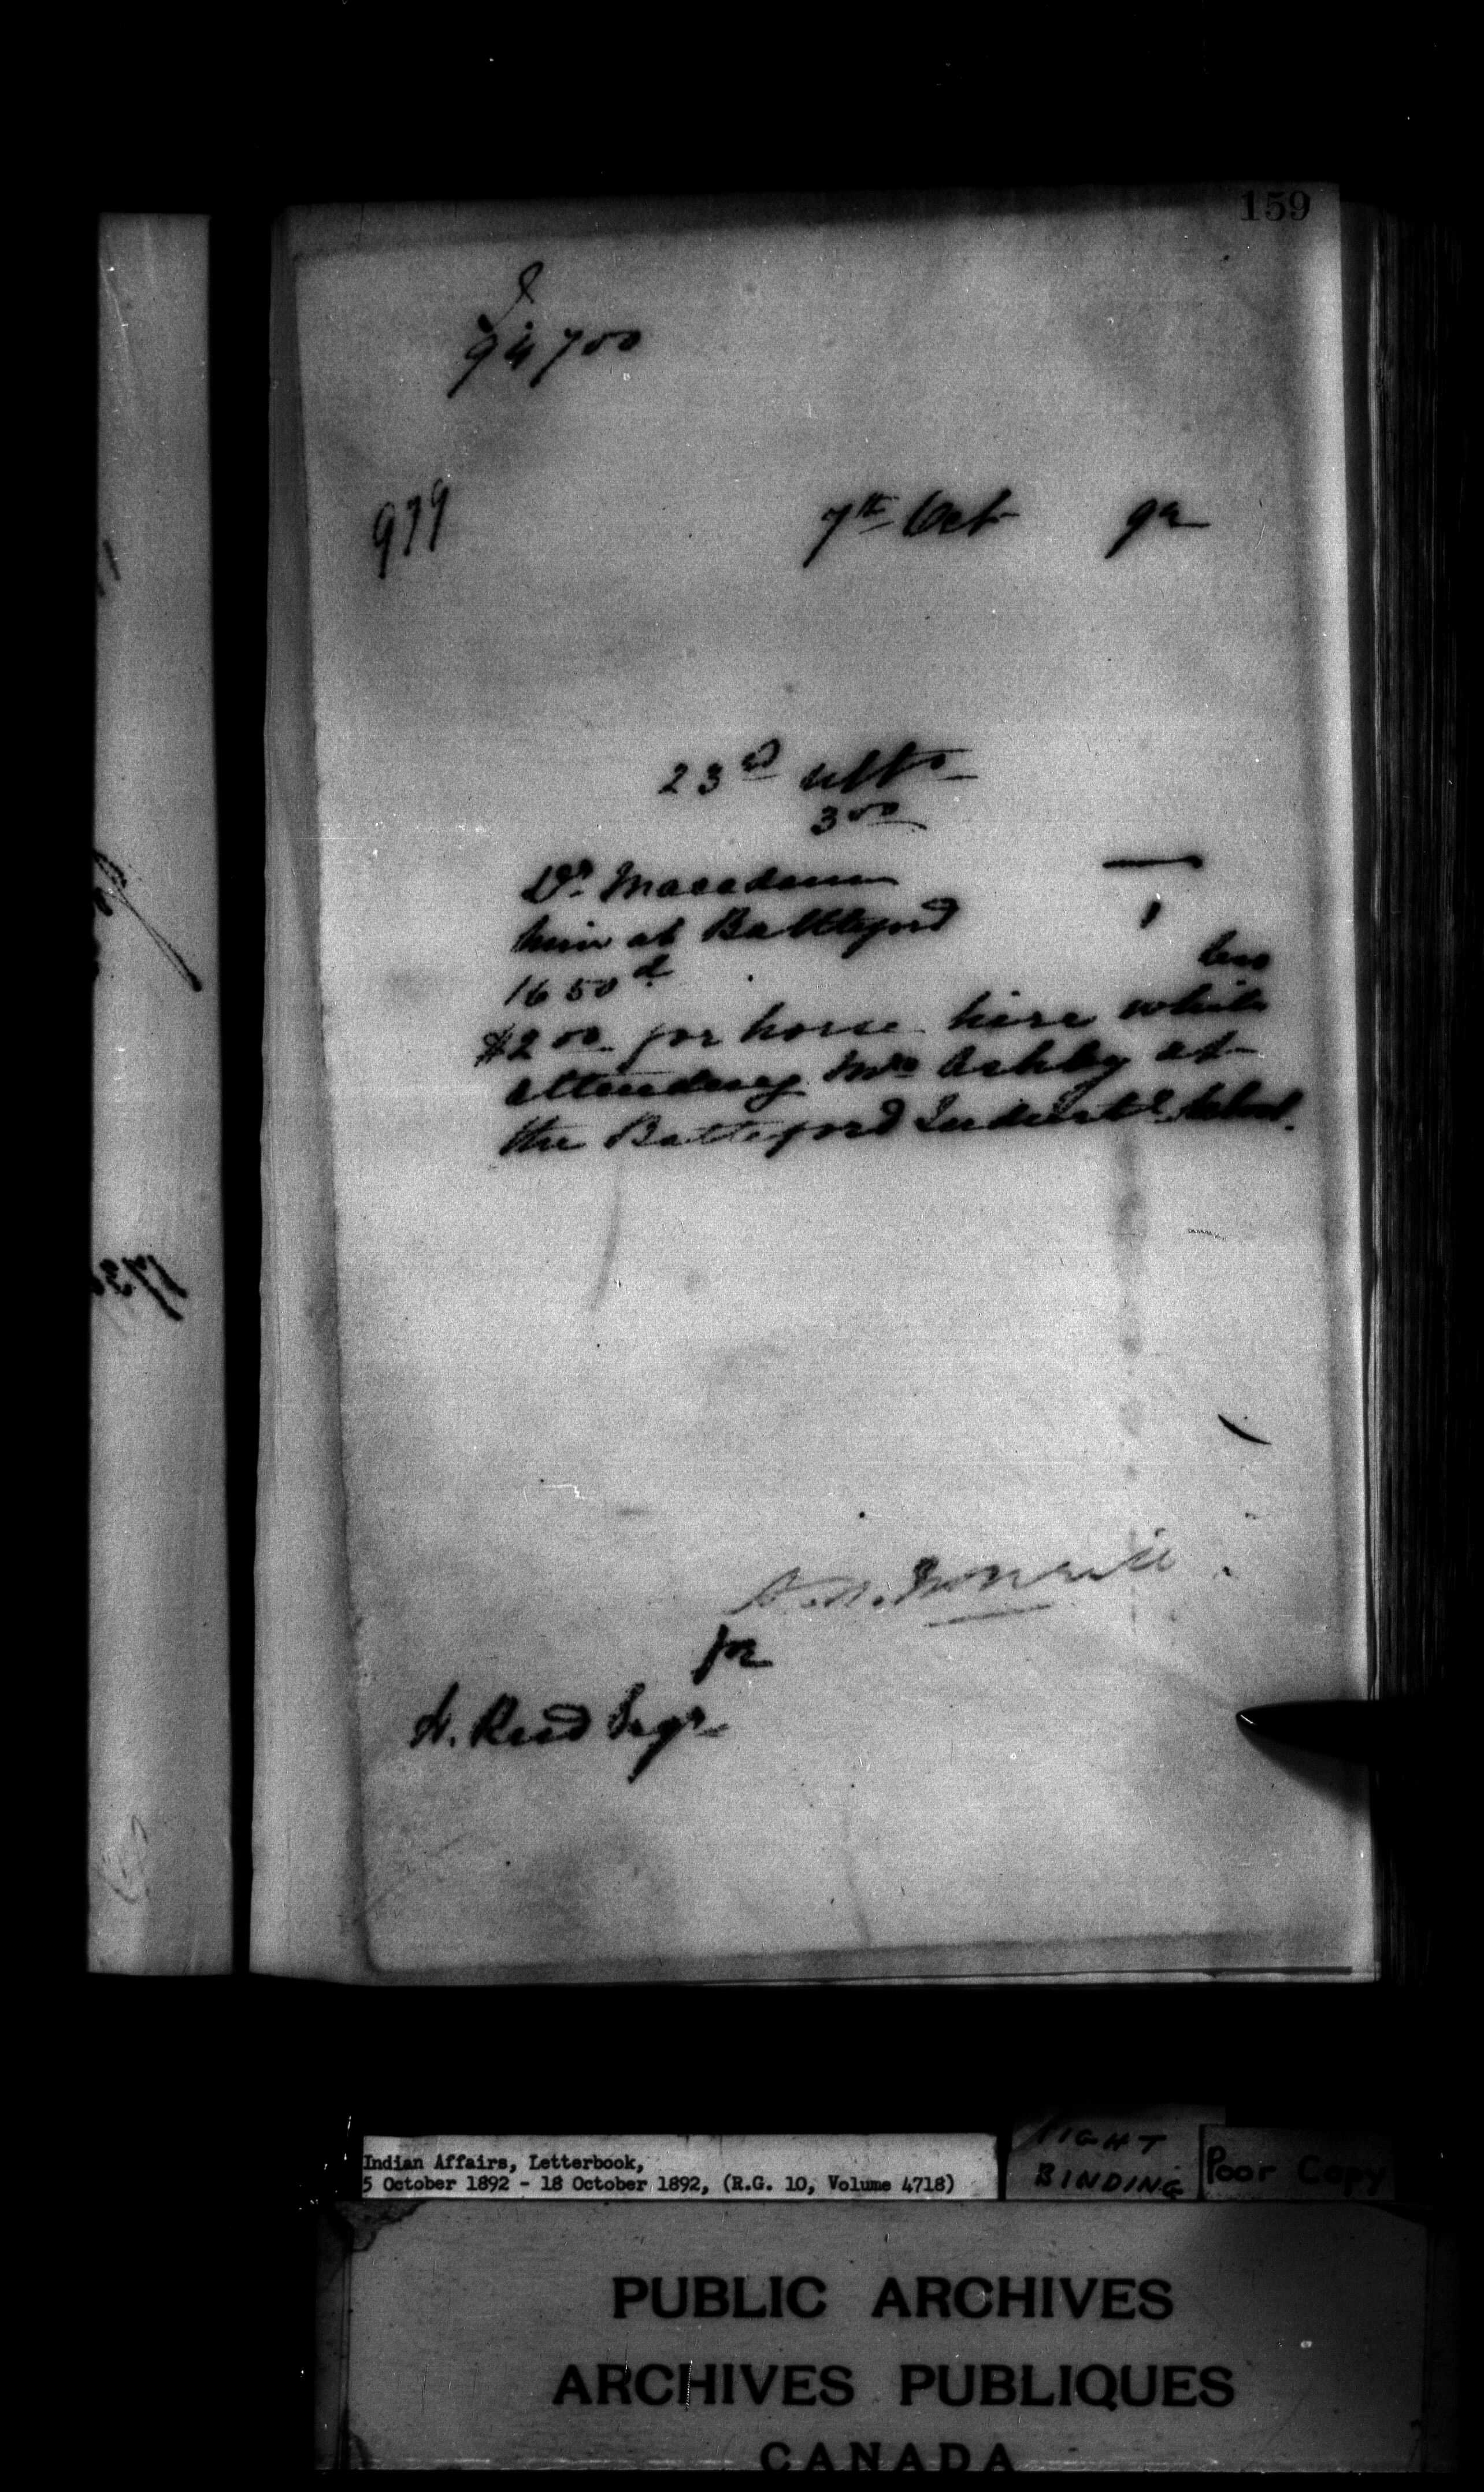 159
94700
979 7th Oct 92
23rd ulto
3 00
Dr. Macadam
him at Battleford
16 50 d less
$2 00 for horse hire while
attending Mrs Ashby at
the Battleford Industl School.
for
H. Reed Esqr
Indian Affairs, Letterbook,
5 October 1892 - 18 October 1892, (R.G. 10, Volume 4718)
BINDING
Poor Copy
PUBLIC ARCHIVES
ARCHIVES PUBLIQUES
CANADA